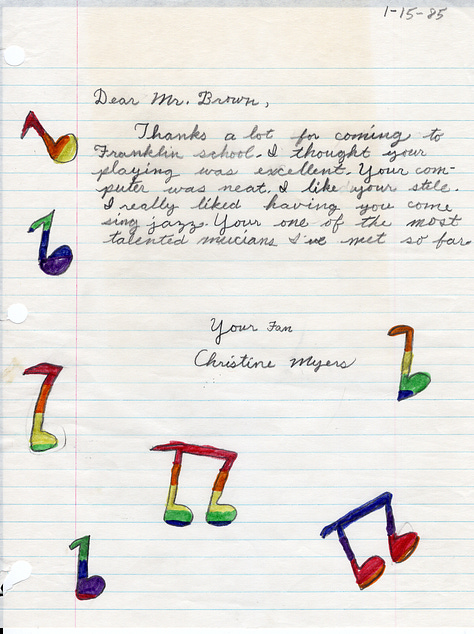 1-15-85
Dear Mr. Brown,
Thanks a lot for coming to
Franklin school. I thought your
playing was excellent. Your com-
puter was neat. I like your stile.
I really liked having you come
sing jazz. Your one of the most
talented mucians I've met so far.
Your Fan
Christine Myers